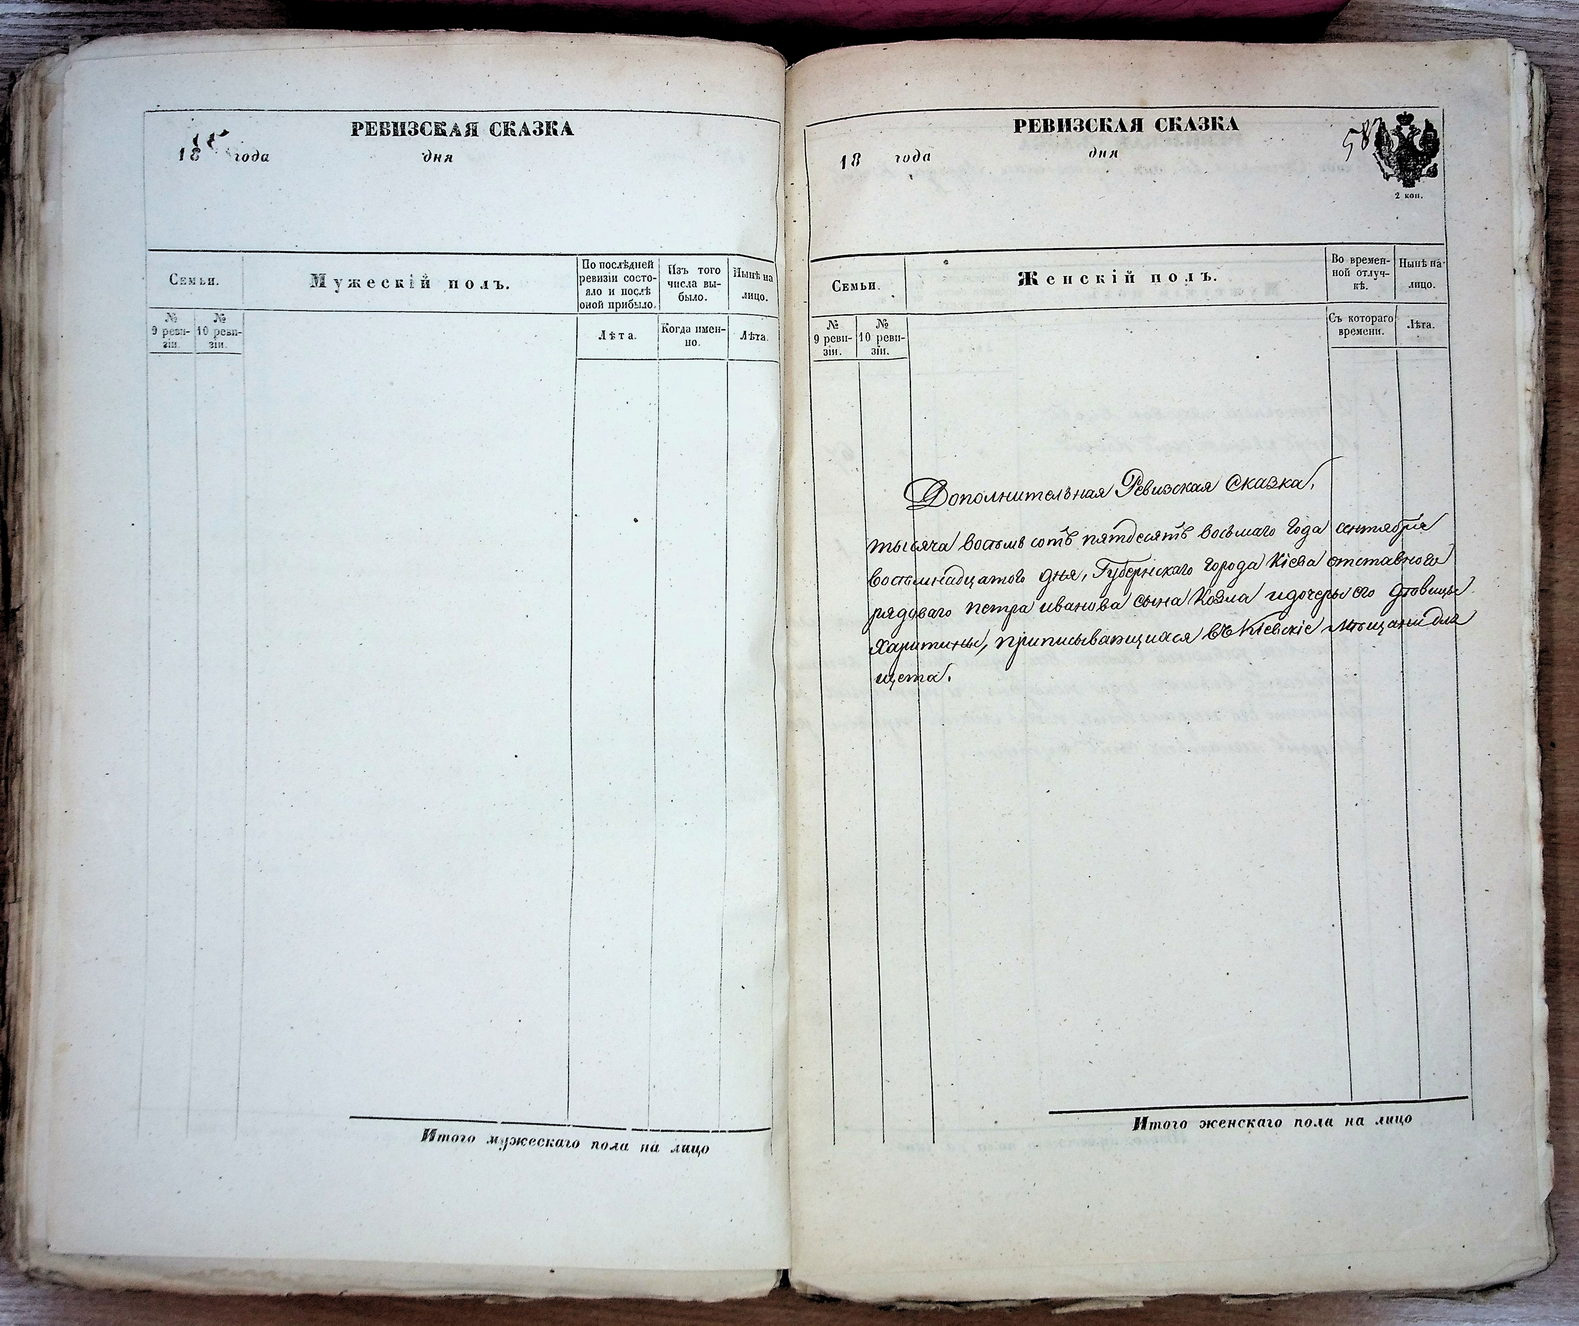 РЕВИЗСКАЯ СКАЗКА
18 года дня
Семьи.
Мужескій полъ.
По послѣдней
ревизіи состо-
яло и послѣ
оной прибыло.
Изъ того
числа вы-
было.
Нынѣ на
лицо.
№
9 реви-
зіи.
№
10 реви-
зіи.
Лѣта.
Когда имен-
но.
Лѣта.
Итого мужескаго пола на лицо
РЕВИЗСКАЯ СКАЗКА
18 года дня
2 коп.
Семьи.
Женскій полъ.
Во времен-
ной отлуч-
кѣ.
Нынѣ на
лицо.
№
9 реви-
зіи.
№
10 реви-
зіи.
Съ котораго
времени.
Лѣта.
Дополнительная Ревизская Сказка,
тысяча восемь сотъ пятдесятъ восьмаго года сентября
восемнадцатого дня, Губернскаго города Кіева отставного
рядоваго Петра Иванова сына Козла и дочеры его дѣвицы
Харитины, приписывающиися въ Кіевскіе Мѣщани для
щета.
Итого женскаго пола на лицо